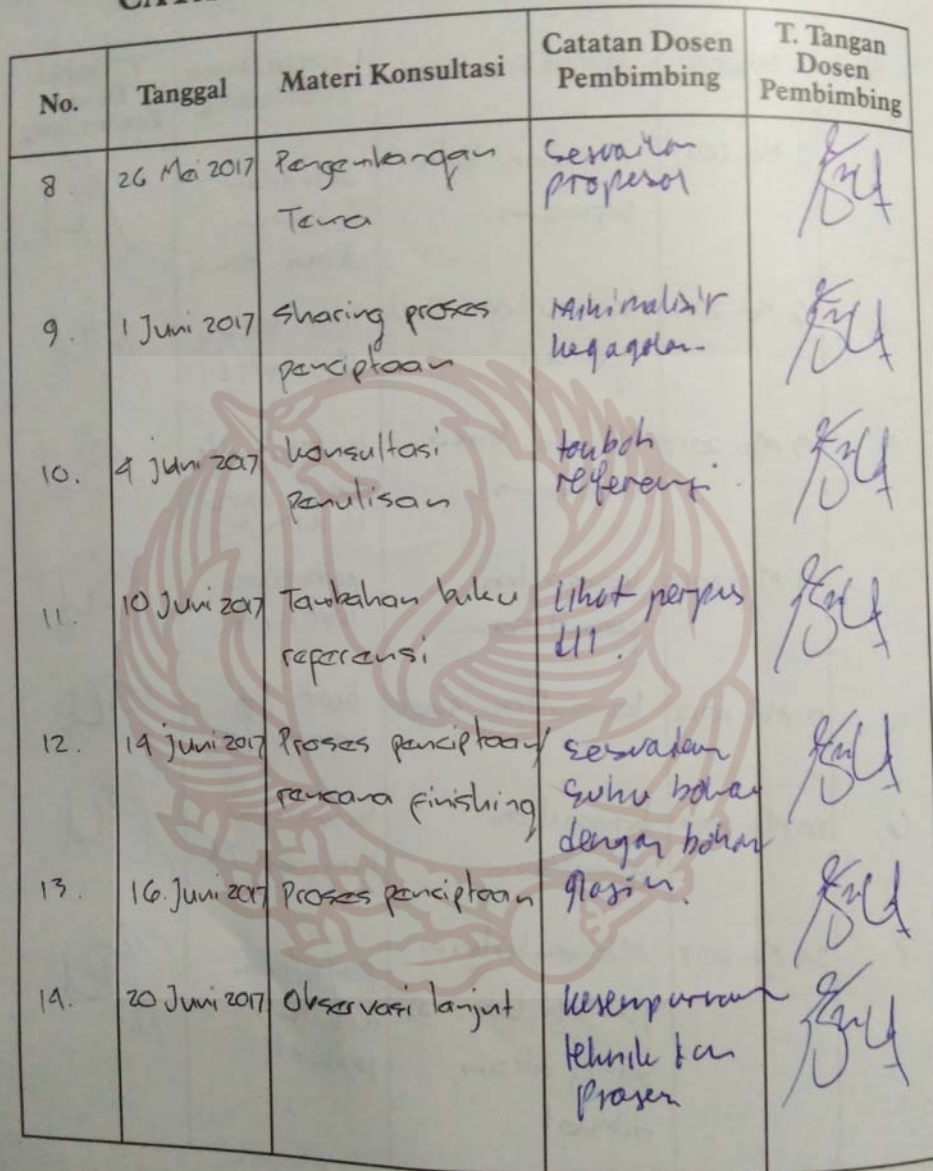 No.
Tanggal
Materi Konsultasi
Catatan Dosen
Pembimbing
T. Tangan
Dosen
Pembimbing
8
26 Mei 2017
Pengembangan
Tema
Sesuaikan
proposal
9.
1 Juni 2017
Sharing proses
penciptaan
Minimalisir
kegagalan
10.
4 Juni 2017
konsultasi
penulisan
tambah
referensi
11.
10 Juni 2017
Tambahan buku
referensi
Lihat perpus
12.
14 Juni 2017
Proses penciptaan/
rencana finishing
sesuaikan
suhu bahan
dengan bahan
13.
16 Juni 2017
Proses penciptaan
glasir.
14.
20 Juni 2017
Observasi lanjut
kesempurnaan
teknik dan
proses